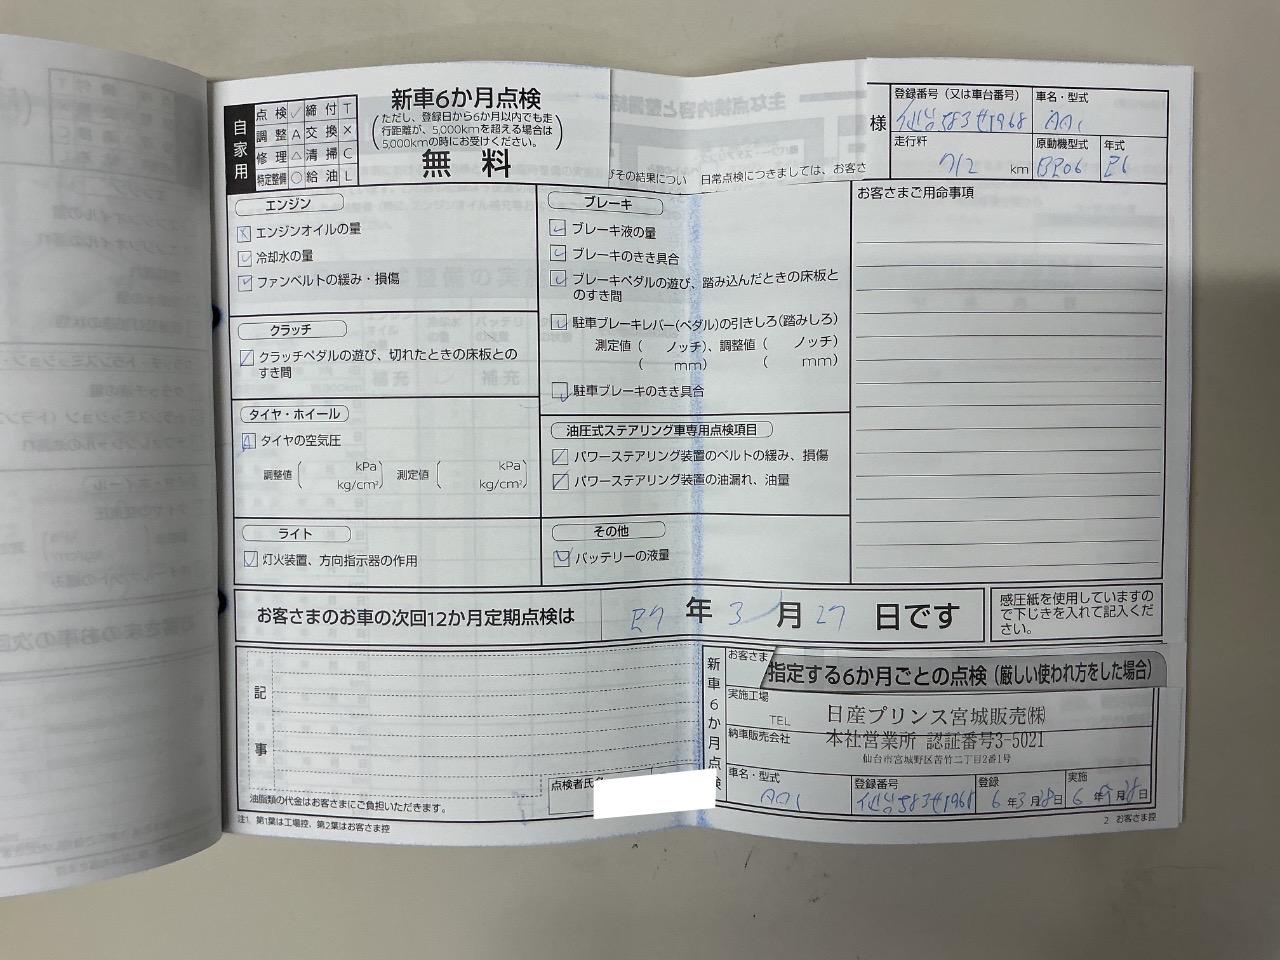 自家用
点検 ✓ 締付 T
調整 A 交換 ×
修理 △ 清掃 C
特定整備 ○ 給油 L
新車6か月点検
(ただし、登録日から6か月以内でも走
行距離が、5,000kmを超える場合は
5,000kmの時にお受けください。)
無料
びその結果につい
日常点検につきましては、お客さ
様
登録番号(又は車台番号)
車名・型式
走行料
712 km
原動機型式
年式
エンジン
エンジンオイルの量
冷却水の量
ファンベルトの緩み・損傷
クラッチ
クラッチペダルの遊び、切れたときの床板との
すき間
タイヤ・ホイール
タイヤの空気圧
調整値 ( kPa kg/cm² ) 測定値 ( kPa kg/cm² )
ライト
灯火装置、方向指示器の作用
ブレーキ
ブレーキ液の量
ブレーキのきき具合
ブレーキペダルの遊び、踏み込んだときの床板と
のすき間
駐車ブレーキレバー(ペダル)の引きしろ(踏みしろ)
測定値( ノッチ)、調整値( ノッチ)
( mm) ( mm)
駐車ブレーキのきき具合
油圧式ステアリング車専用点検項目
パワーステアリング装置のベルトの緩み、損傷
パワーステアリング装置の油漏れ、油量
その他
バッテリーの液量
お客さまご用命事項
お客さまのお車の次回12か月定期点検は
R7 年 3 月 27 日です
感圧紙を使用していますの
で下じきを入れて記入くだ
さい。
記事
油脂類の代金はお客さまにご負担いただきます。
点検者氏名
新車6か月点検
お客さま
指定する6か月ごとの点検(厳しい使われ方をした場合)
実施工場
TEL
日産プリンス宮城販売㈱
納車販売会社
本社営業所 認証番号3-5021
仙台市宮城野区苦竹二丁目2番1号
車名・型式
登録番号
登録
6年3月28日
実施
6年9月28日
注1. 第1葉は工場控、第2葉はお客さま控
2 お客さま控